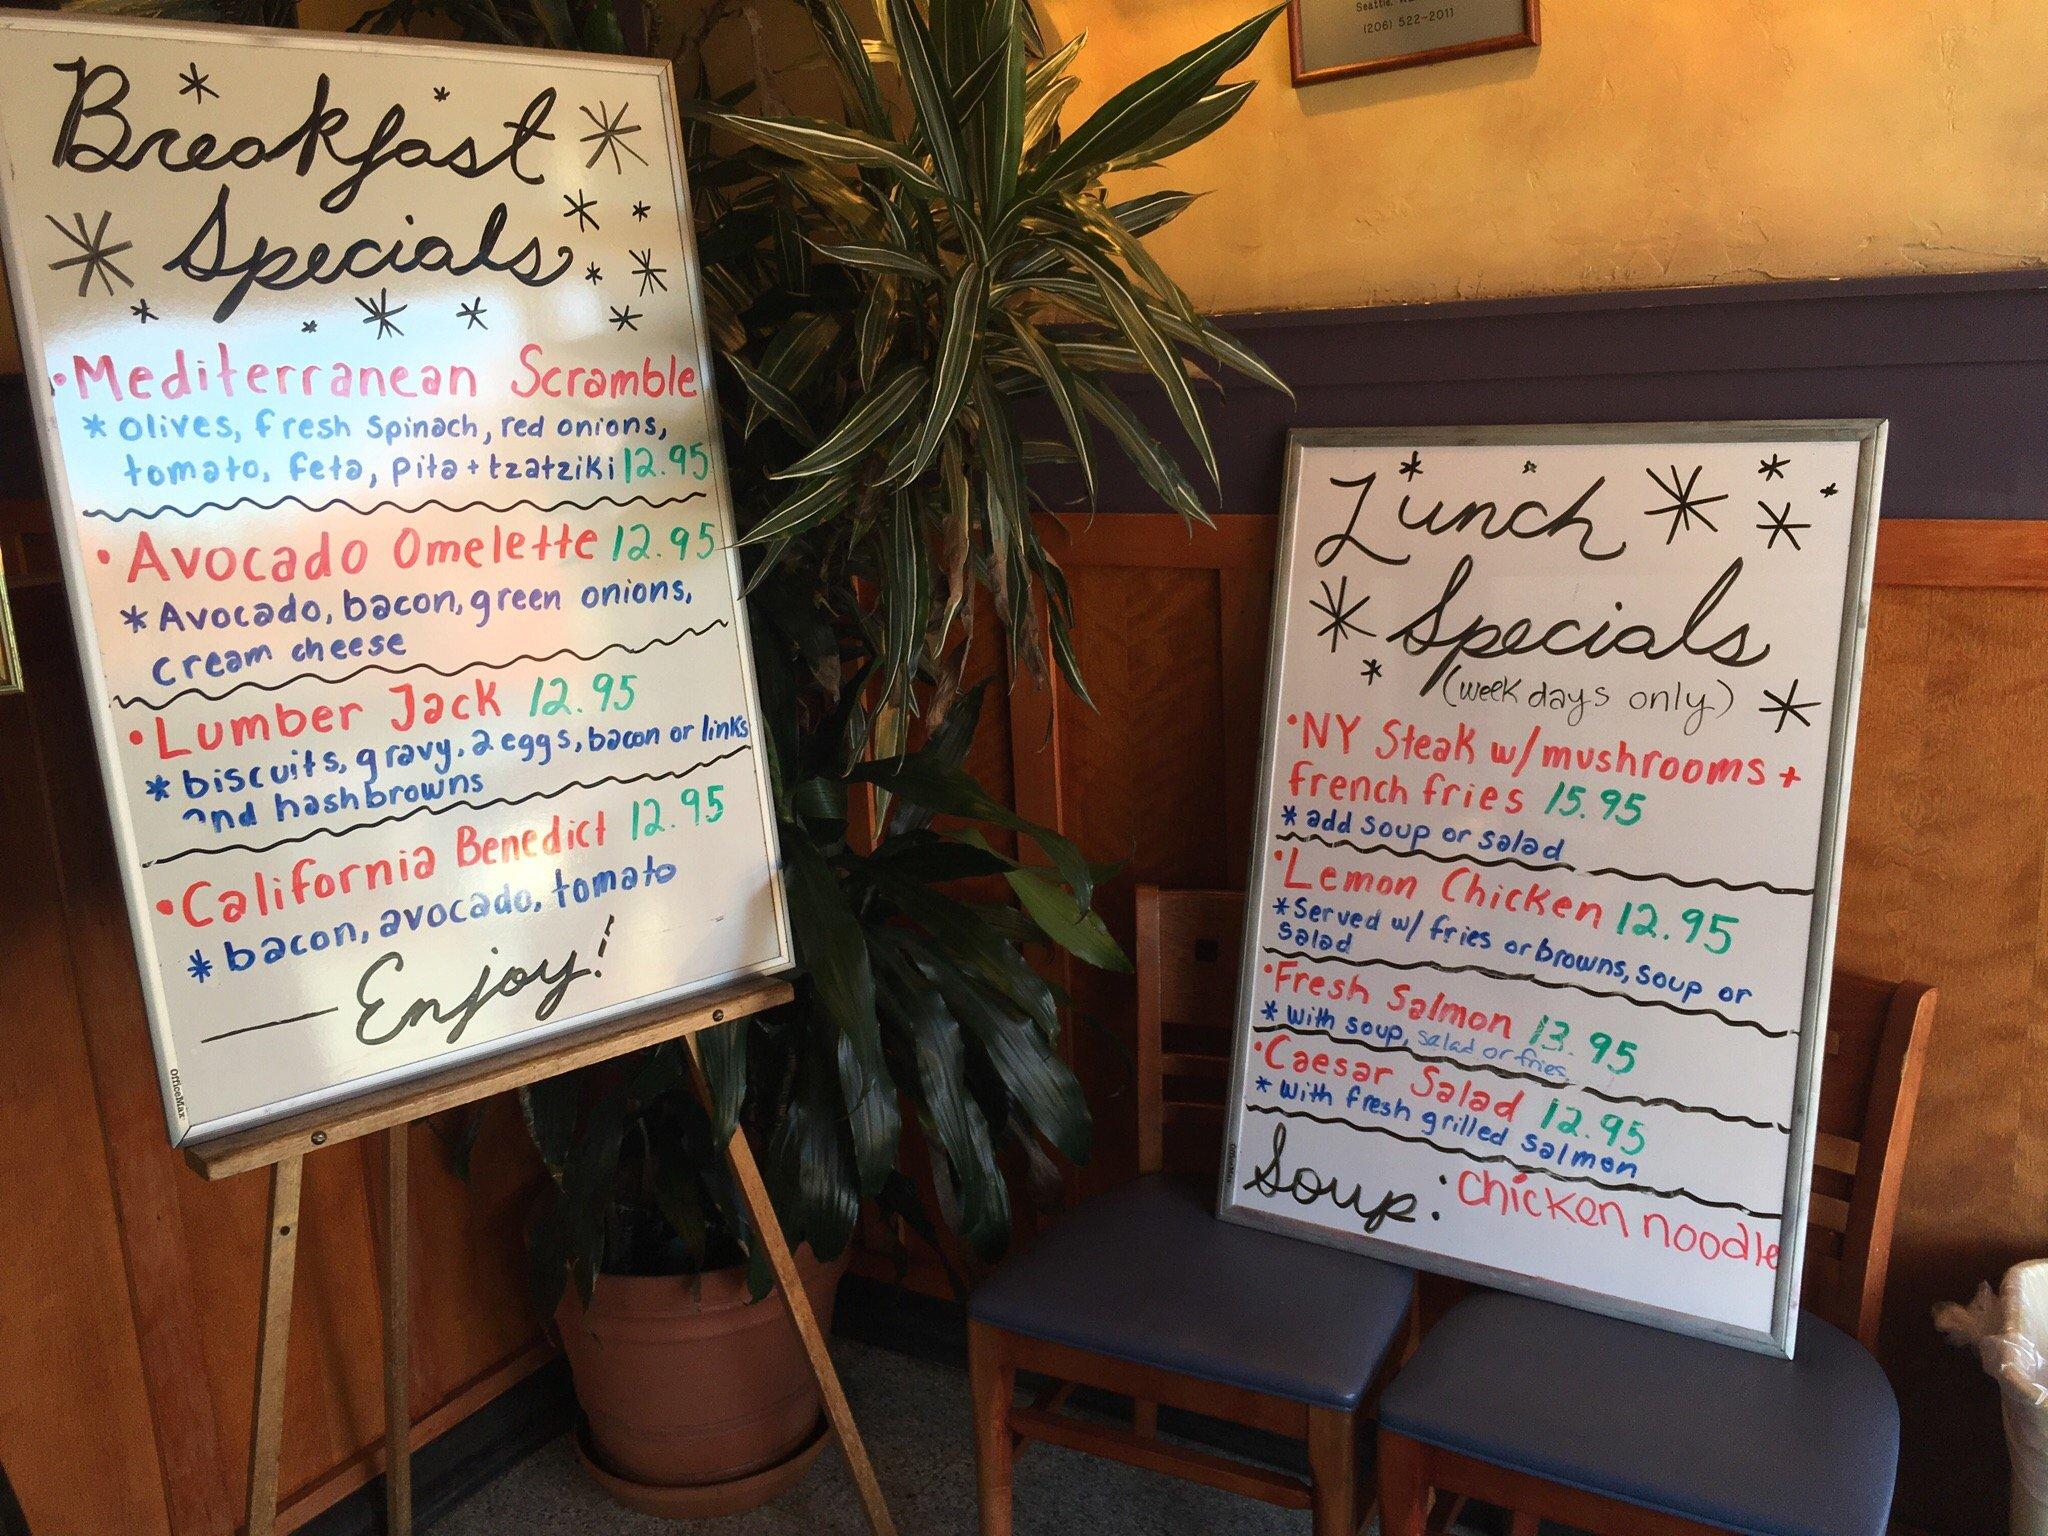 Breakfast
Specials
• Mediterranean Scramble
* Olives, fresh spinach, red onions,
tomato, feta, pita + tzatziki 12.95
• Avocado Omelette 12.95
* Avocado, bacon, green onions,
cream cheese
• Lumber Jack 12.95
* biscuits, gravy, 2 eggs, bacon or links
and hashbrowns
• California Benedict 12.95
* bacon, avocado, tomato
Enjoy!
OfficeMax
Seattle,
(206) 522-2011
Lunch
Specials
(weekdays only)
• NY Steak w/mushrooms +
french fries 15.95
* add soup or salad
• Lemon Chicken 12.95
* Served w/ fries or browns, soup or
salad
• Fresh Salmon 13.95
* with soup, salad or fries
• Caesar Salad 12.95
* with fresh grilled salmon
Soup: Chicken noodle